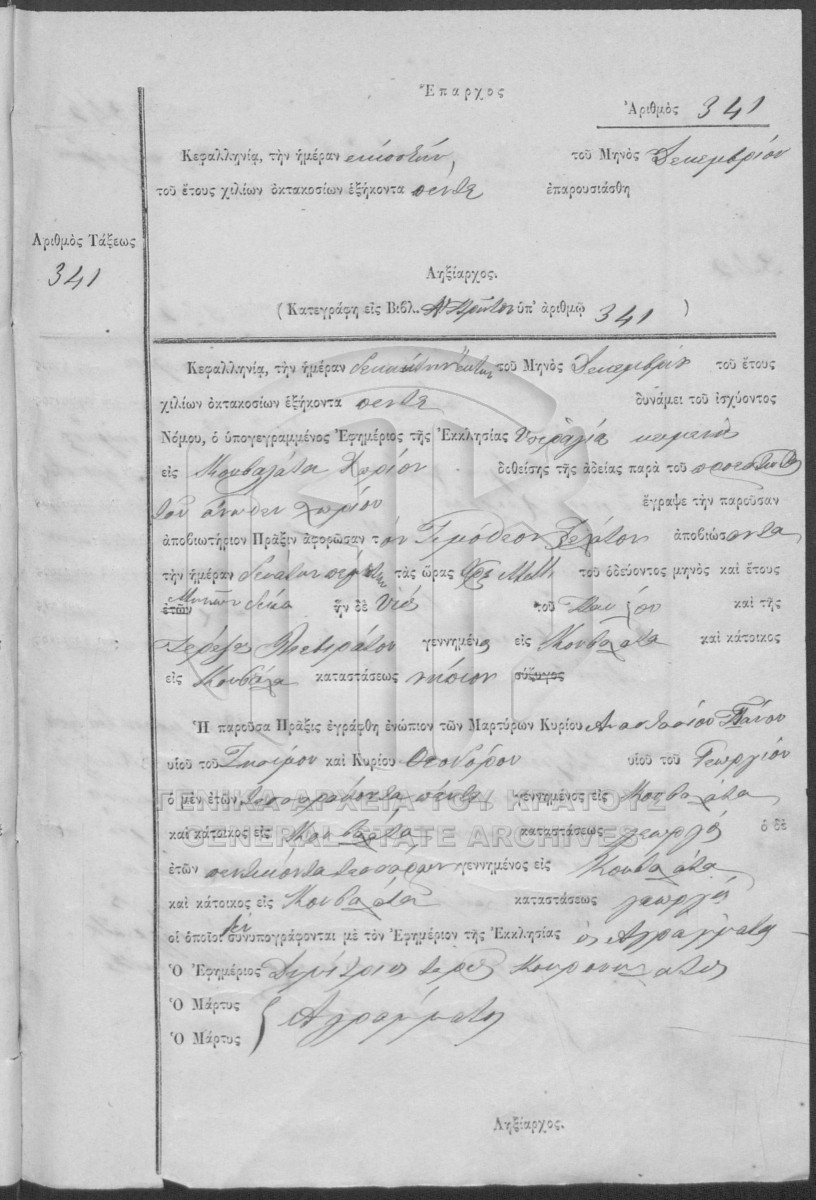 Ἔπαρχος
Ἀριθμὸς 341
Κεφαλληνίᾳ, τὴν ἡμέραν εικοστην, τοῦ Μηνὸς Δεκεμβρίου
τοῦ ἔτους χιλίων ὀκτακοσίων ἑξήκοντα πέντε ἐπαρουσιάσθη
Ἀριθμὸς Τάξεως
341
Ληξίαρχος.
(Κατεγράφη εἰς Βιβλ. Πρῶτον ὑπ' ἀριθμῷ 341 )
Κεφαλληνίᾳ, τὴν ἡμέραν τοῦ Μηνὸς Δεκεμβρίου τοῦ ἔτους
χιλίων ὀκτακοσίων ἑξήκοντα πεντε δυνάμει τοῦ ἰσχύοντος
Νόμου, ὁ ὑπογεγραμμένος Ἐφημέριος τῆς Ἐκκλησίας κειμενης
εἰς Κουβαλάτα Χωρίον δοθείσης τῆς ἀδείας παρὰ τοῦ
του άνωθεν χωρίου ἔγραψε τὴν παροῦσαν
ἀποβιωτήριον Πρᾶξιν ἀφορῶσαν τον Τιμόθεον ἀποβιώσαντα
τὴν ἡμέραν τὰς ὥρας τοῦ ὁδεύοντος μηνὸς καὶ ἔτους
Μηνῶν
ἐτῶν δέκα ἦν δὲ υιός τοῦ Παυλου καὶ τῆς
γεννημένος εἰς Κουβαλατα καὶ κάτοικος
εἰς Κουβαλα καταστάσεως νηπιον σύζυγος
Ἡ παροῦσα Πρᾶξις ἐγράφθη ἐνώπιον τῶν Μαρτύρων Κυρίου Αναστασίου Πάνου
υἱοῦ τοῦ καὶ Κυρίου Θεοδορου υἱοῦ τοῦ Γεωργίου
ὁ μὲν ἐτῶν τεσσαράκοντα πέντε γεννημένος εἰς Κουβαλάτα
καὶ κάτοικος εἰς Κουβαλάτα καταστάσεως γεωργός ὁ δὲ
ἐτῶν πεντικόντα τεσσάρων γεννημένος εἰς Κουβαλάτα
καὶ κάτοικος εἰς Κουβαλάτα καταστάσεως γεωργός
οἱ ὁποῖοι συνυπογράφονται μὲ τὸν Ἐφημέριον τῆς Ἐκκλησίας ως Αγράμματοι
Ὁ Ἐφημέριος Δημήτριος ιερευς
Ὁ Μάρτυς
Ὁ Μάρτυς Αγράμματοι
Ληξίαρχος.
ΓΕΝΙΚΑ ΑΡΧΕΙΑ ΤΟΥ ΚΡΑΤΟΥΣ
GENERAL STATE ARCHIVES